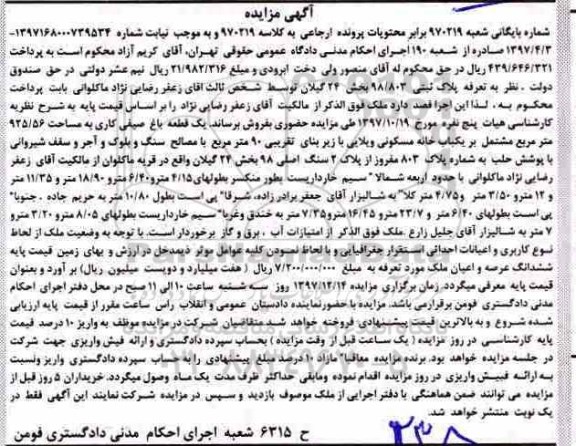 آگهی مزایده
شماره بایگانی شعبه ۹۷۰۲۱۹ برابر محتویات پرونده ارجاعی به کلاسه ۹۷۰۲۱۹ و به موجب نیابت شماره ۱۳۹۷۱۶۸۰۰۰۷۳۹۵۳۴-
۱۳۹۷/۴/۳ صادره از شعبه ۱۹۰ اجرای احکام مدنی دادگاه عمومی حقوقی تهران، آقای کریم آزاد محکوم است به پرداخت
۴۳۹/۶۴۶/۳۲۱ ریال در حق محکوم له آقای منصور ولی دخت ابرودی و مبلغ ۲۱/۹۸۲/۳۱۶ ریال نیم عشر دولتی در حق صندوق
دولت . نظر به تعرفه پلاک ثبتی ۹۸/۸۰۳ بخش ۲۴ گیلان توسط شخص ثالث آقای زعفر رضایی نژاد ماکلوانی بابت پرداخت
محکوم به . لذا این اجرا قصد دارد ملک فوق الذکر از مالکیت آقای زعفر رضایی نژاد را بر اساس قیمت پایه به شرح نظریه
کارشناسی هیات پنج نفره مورخ ۱۳۹۷/۱۰/۱۹ طی مزایده حضوری بفروش برساند. یک قطعه باغ صیفی کاری به مساحت ۹۲۵/۵۶
متر مربع مشتمل بر یکباب خانه مسکونی ویلایی با زیر بنای تقریبی ۹۰ متر مربع با مصالح سنگ و بلوک و آجر و سقف شیروانی
با پوشش حلب به شماره پلاک ۸۰۳ مفروز از پلاک ۲ سنگ اصلی ۹۸ بخش ۲۴ گیلان واقع در قریه ماکلوان از مالکیت آقای زعفر
رضایی نژاد ماکلوانی با حدود اربعه شمالا " سیم خارداریست بطور منکسر بطولهای ۴/۱۵ مترو ۶/۴۰ مترو ۱۸/۹۰ متر و ۱۱/۳۵ متر
و ۱۲ مترو ۳/۵۰ متر و ۴/۷۵ متر کلا" به شالیزار آقای جعفر برادر زاده، شرقا" پی است بطول ۱۰/۸۰ متر به حریم جاده . جنوبا"
پی است بطولهای ۶/۴۰ متر و ۲۳/۷ مترو ۱۶/۴۵ مترو ۷/۳۵ متر به خندق وغربا" سیم خارداریست بطولهای ۸/۰۵ مترو ۳/۲۰ مترو
۷ متر به شالیزار آقای جلیل زارع .ملک فوق الذکر از امتیازات آب ، برق و گاز برخوردار است. با توجه به وضعیت ملک از لحاظ
نوع کاربری و اعیانات احداثی استقرار جغرافیایی و با لحاظ نمودن کلیه عوامل موثر ذیمدخل در ارزش و بهای زمین قیمت پایه
ششدانگ عرصه و اعیان ملک مورد تعرفه به مبلغ ۷/۲۰۰/۰۰۰/۰۰۰ ریال ( هفت میلیارد و دویست میلیون ریال) بر آورد و بعنوان
قیمت پایه معرفی میگردد. زمان برگزاری مزایده ۱۳۹۷/۱۲/۱۴ روز سه شنبه ساعت ۱۰ الی ۱۱ صبح در محل دفتر اجرای احکام
مدنی دادگستری فومن برقرار می باشد. مزایده با حضور نماینده دادستان عمومی و انقلاب راس ساعت مقرر از قیمت پایه ارزیابی
شده شروع و به بالاترین قیمت پیشنهادی فروخته خواهد شد. متقاضیان شرکت در مزایده موظف به واریز ۱۰ درصد قیمت
پایه کارشناسی در روز مزایده ( یک ساعت قبل از وقت مزایده ) بحساب سپرده دادگستری و ارائه فیش واریزی جهت شرکت
در جلسه مزایده خواهد بود. برنده مزایده معاقبا" مازاد ۱۰ درصد مبلغ پیشنهادی را به حساب سپرده دادگستری واریز ونسبت
به ارائه فیش واریزی در روز مزایده اقدام نموده ومابقی حداکثر ظرف مدت یک ماه وصول میگردد. خریداران ۵ روز قبل از
مزایده می توانند ضمن هماهنگی با دفتر اجرایی از ملک موصوف بازدید و سپس در مزایده شرکت نمایند این آگهی فقط در
یک نوبت منتشر خواهد شد.
ح ۶۳۱۵ شعبه اجرای احکام مدنی دادگستری فومن